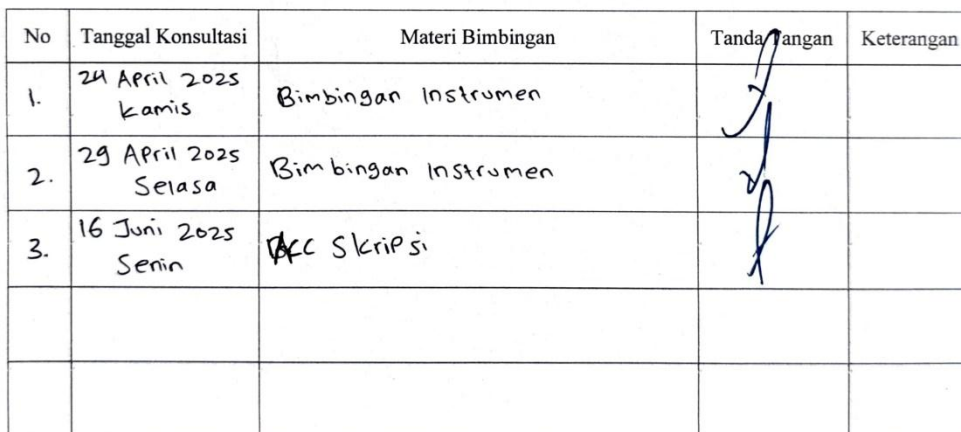 No Tanggal Konsultasi Materi Bimbingan Tanda Tangan Keterangan
1. 24 April 2025 Kamis Bimbingan Instrumen
2. 29 April 2025 Selasa Bimbingan Instrumen
3. 16 Juni 2025 Senin ACC Skripsi